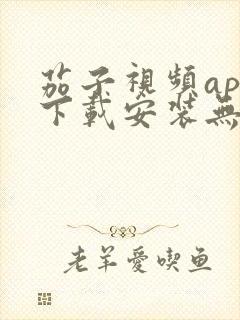 茄子視頻ap
下載安裝無
老羊愛喫鱼